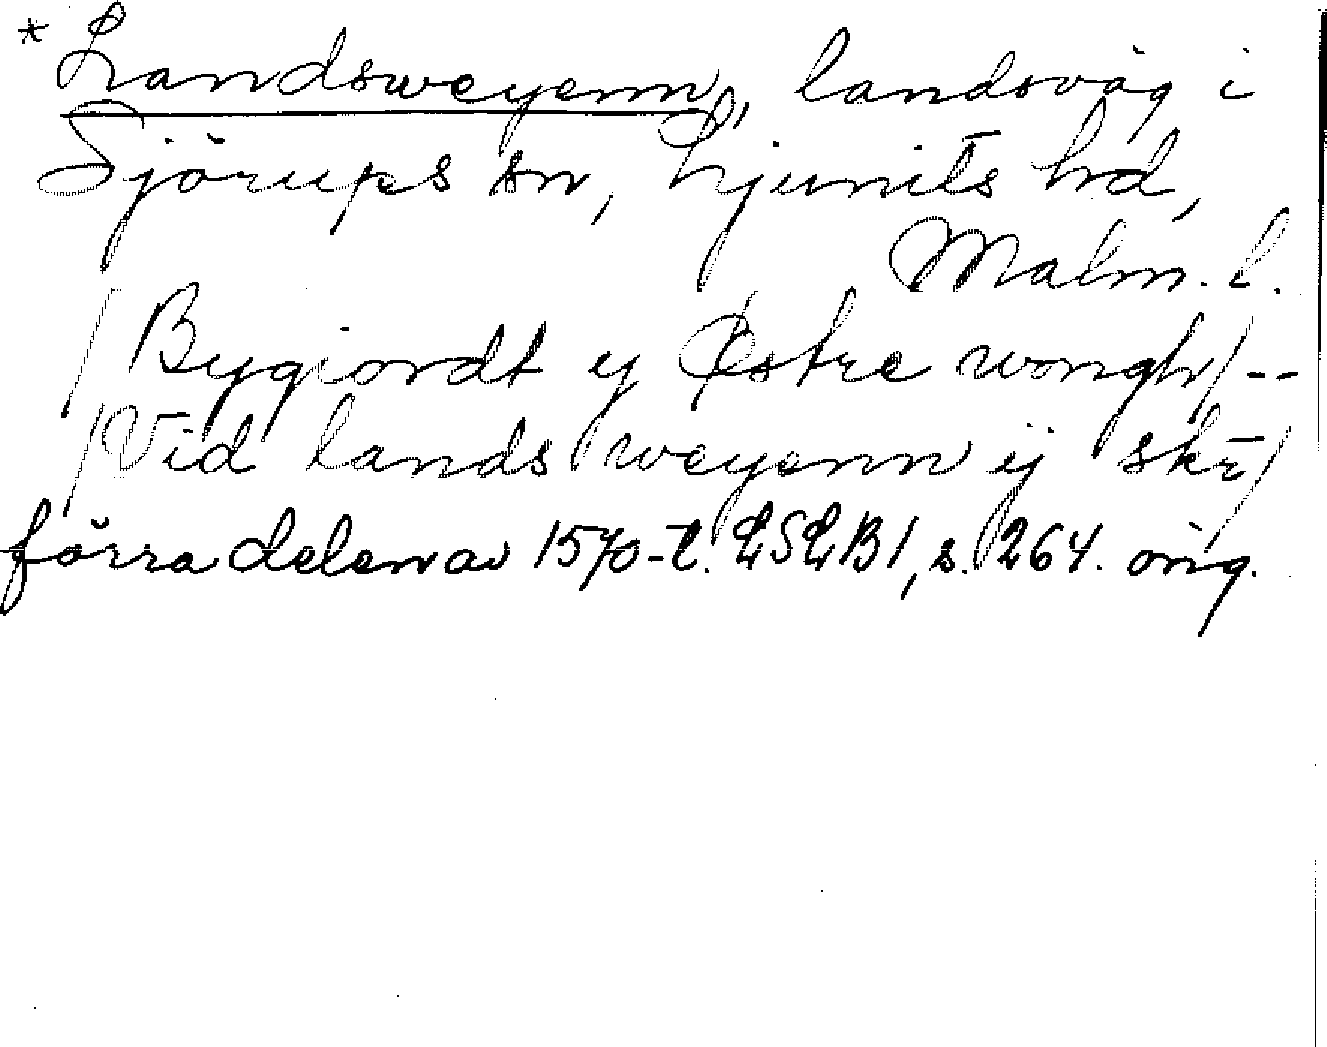 * Landsweyenn, landsväg i
Sjörups sn, Ljunits hd,
Malm. l.
/ Bygiordt y Østre wongh / --
/ Vid lands weyenn ij skr̄ /
förra delen av 1570-t. LSLB1, s. 264. orig.